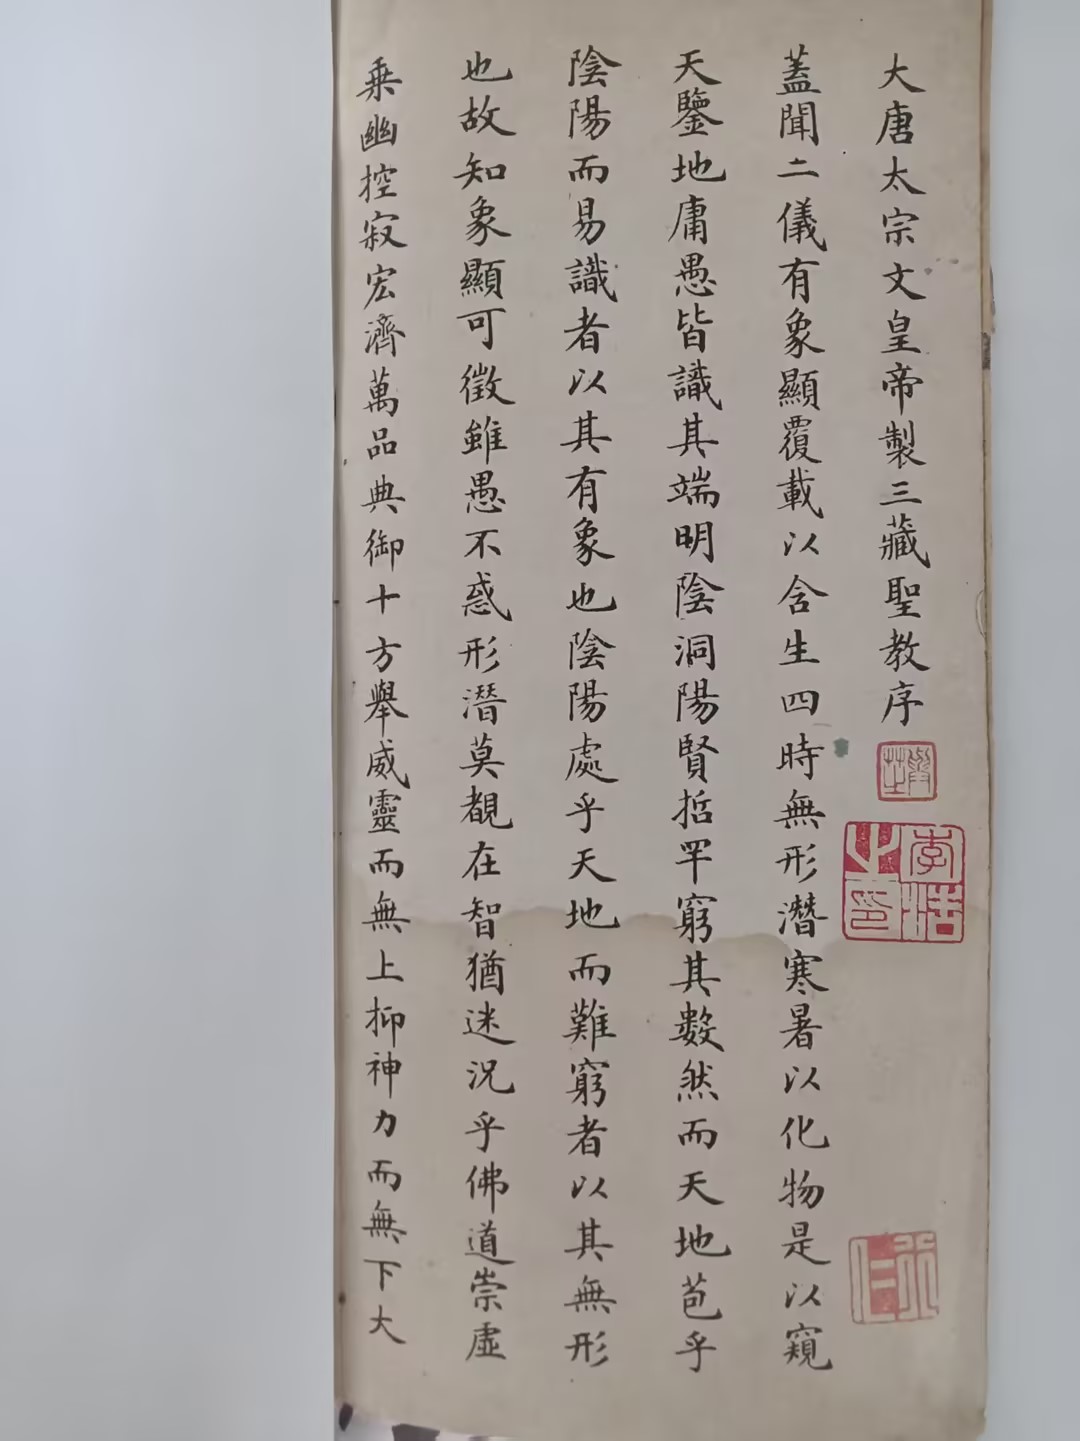 大唐太宗文皇帝製三藏聖教序
蓋聞二儀有象顯覆載以含生四時無形潛寒暑以化物是以窺
天鑒地庸愚皆識其端明陰洞陽賢哲罕窮其數然而天地苞乎
陰陽而易識者以其有象也陰陽處乎天地而難窮者以其無形
也故知象顯可徵雖愚不惑形潛莫覩在智猶迷況乎佛道崇虛
乘幽控寂宏濟萬品典御十方舉威靈而無上抑神力而無下大